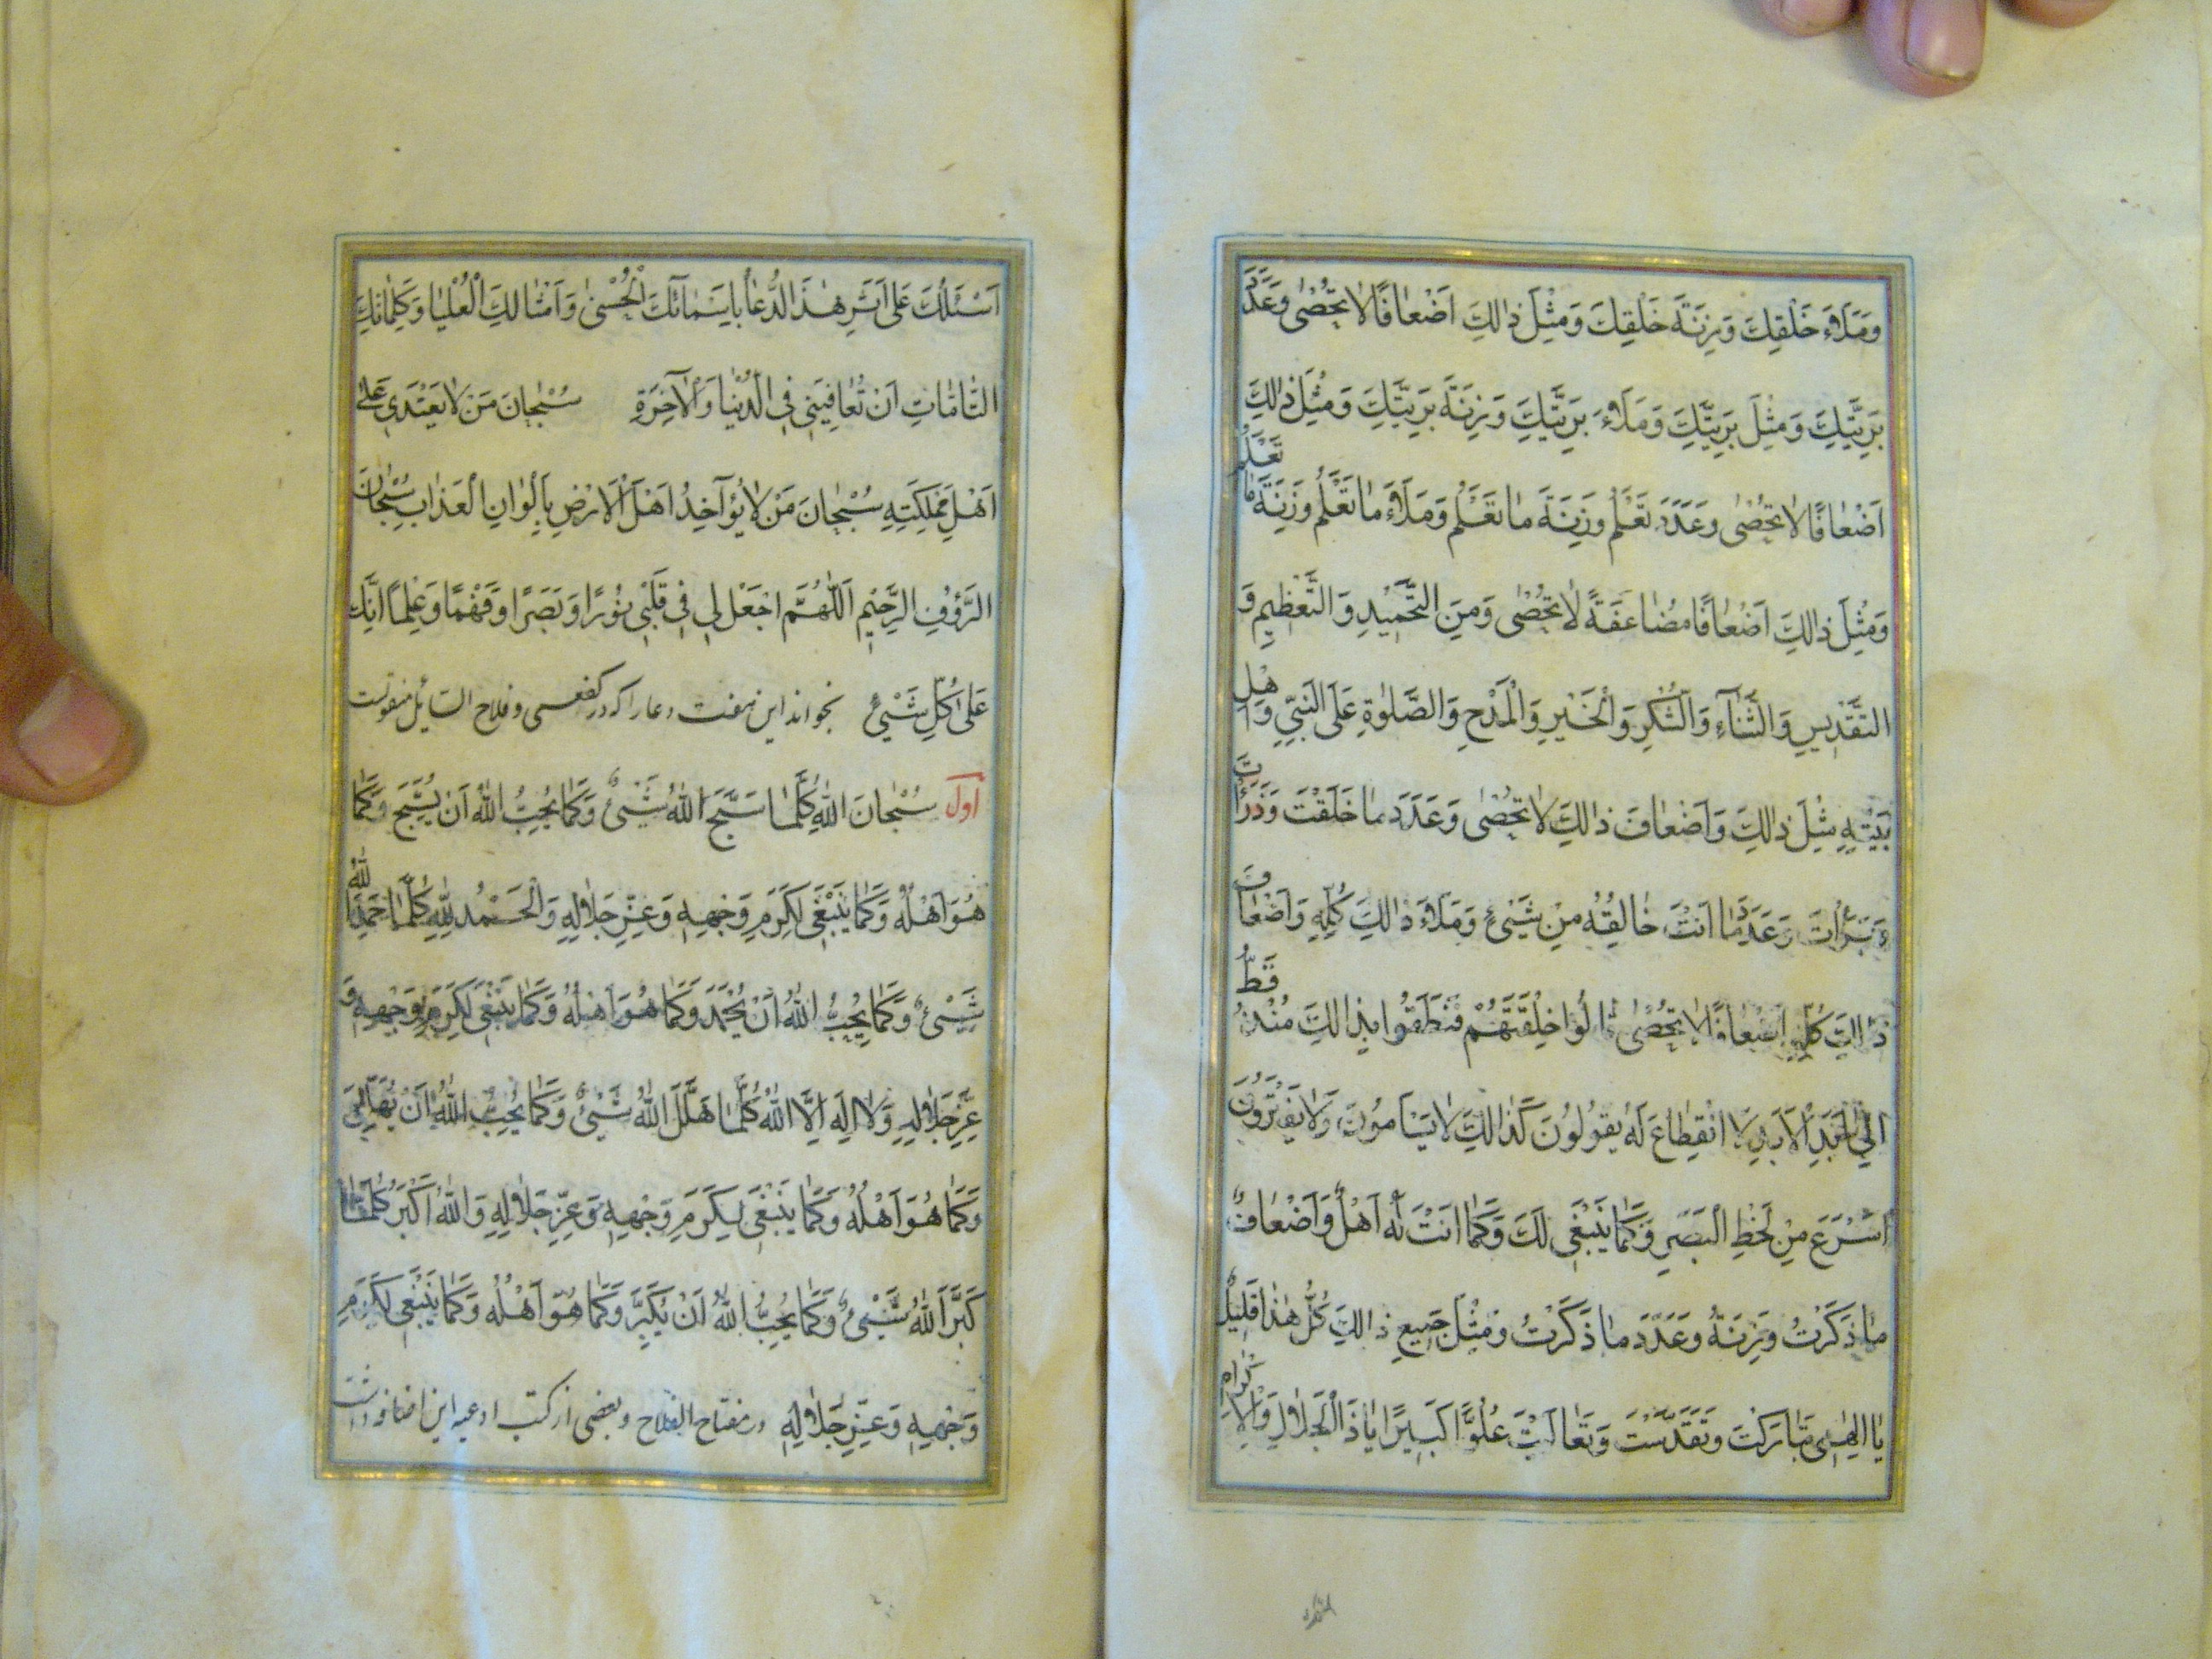 وَمَلَاءَ خَلْقِكَ وَزِنَةَ خَلْقِكَ وَمِثْلَ ذٰالِكَ اَضْعٰافًا لٰا تُحْصٰى وَعَدَدَ
بَرِيَّتِكَ وَمِثْلَ بَرِيَّتِكَ وَمَلَاءَ بَرِيَّتِكَ وَزِنَةَ بَرِيَّتِكَ وَمِثْلَ ذٰالِكَ
اَضْعٰافًا لٰا تُحْصٰى وَعَدَدَ تَعْلَمُ وَزِنَةَ مٰا تَعْلَمُ وَمَلَاءَ مٰا تَعْلَمُ وَزِنَةَ مٰا تَعْلَمُ
وَمِثْلَ ذٰالِكَ اَضْعٰافًا مُضٰاعَفَةً لٰا تُحْصٰى وَمِنَ التَّحْمِيْدِ وَالتَّعْظِيمِ وَ
التَّقْدِيسِ وَالثَّنٰآءِ وَالشُّكْرِ وَالْخَيْرِ وَالْمَدْحِ وَالصَّلٰوةِ عَلَى النَّبِيِّ وَاَهْلِ
بَيْتِهِ مِثْلَ ذٰالِكَ وَاَضْعٰافَ ذٰالِكَ لٰا تُحْصٰى وَعَدَدَ مٰا خَلَقْتَ وَذَرَأْتَ
وَبَرَأْتَ وَعَدَدَ مٰا اَنْتَ خٰالِقُهُ مِنْ شَيْئٍ وَمَلَاءَ ذٰالِكَ كُلِّهِ وَاَضْعٰافَ
ذٰالِكَ كُلِّهِ اَضْعٰافًا لٰا تُحْصٰى لُوا خَلَقْتَهُمْ فَنَطَقُوا بِذٰالِكَ مُنْذُ قَطُّ
اِلَى الْاَبَدِ لٰا انْقِطٰاعَ لَهُ يَقُولُونَ كَذٰالِكَ لٰا يَسْاَمُونَ وَلٰا يَفْتُرُونَ
اَسْرَعَ مِنْ لَحْظِ الْبَصَرِ وَكَمٰا يَنْبَغِى لَكَ وَكَمٰا اَنْتَ لَهُ اَهْلٌ وَاَضْعٰافَ
مٰا ذَكَرْتُ وَزِنَةُ وَعَدَدَ مٰا ذَكَرْتُ وَمِثْلَ جَمِيعِ ذٰالِكَ كُلُّ هٰذٰا قَلِيلٌ
يٰا اِلٰهِى تَبٰارَكْتَ وَتَقَدَّسْتَ وَتَعٰالَيْتَ عُلُوًّا كَبِيرًا يٰا ذَا الْجَلٰالِ وَالْاِكْرٰامِ
اَسْئَلُكَ عَلٰى اَثَرِ هٰذَا الدُّعٰآءِ بِاَسْمٰآئِكَ الْحُسْنٰى وَاَمْثٰالِكَ الْعُلْيٰا وَكَلِمٰاتِكَ
التّٰامّٰاتِ اَنْ تُعٰافِيَنِى فِى الدُّنْيٰا وَالْآخِرَةِ سُبْحٰانَ مَنْ لٰا يَعْتَدِى عَلٰى
اَهْلِ مَمْلِكَتِهِ سُبْحٰانَ مَنْ لٰا يُؤٰاخِذُ اَهْلَ الْاَرْضِ بِاَلْوٰانِ الْعَذٰابِ سُبْحٰانَ
الرَّؤُفِ الرَّحِيْمِ اَللّٰهُمَّ اجْعَلْ لِى فِى قَلْبِى نُورًا وَبَصَرًا وَفَهْمًا وَعِلْمًا اِنَّكَ
عَلٰى كُلِّ شَيْئٍ بخواند این هفت دعا را كه در كفعمى وفلاح السائل منقولست
اَوّل سُبْحٰانَ اللّٰهِ كُلَّمٰا سَبَّحَ اللّٰهَ شَيْئٌ وَكَمٰا يُحِبُّ اللّٰهُ اَنْ يُسَبَّحَ وَكَمٰا
هُوَ اَهْلُهُ وَكَمٰا يَنْبَغِى لِكَرَمِ وَجْهِهِ وَعِزِّ جَلٰالِهِ وَالْحَمْدُ لِلّٰهِ كُلَّمٰا حَمِدَ اللّٰهَ
شَيْئٌ وَكَمٰا يُحِبُّ اللّٰهُ اَنْ يُحْمَدَ وَكَمٰا هُوَ اَهْلُهُ وَكَمٰا يَنْبَغِى لِكَرَمِ وَجْهِهِ وَ
عِزِّ جَلٰالِهِ وَلٰا اِلٰهَ اِلَّا اللّٰهُ كُلَّمٰا هَلَّلَ اللّٰهَ شَيْئٌ وَكَمٰا يُحِبُّ اللّٰهُ اَنْ يُهَلَّلَ
وَكَمٰا هُوَ اَهْلُهُ وَكَمٰا يَنْبَغِى لِكَرَمِ وَجْهِهِ وَعِزِّ جَلٰالِهِ وَاللّٰهُ اَكْبَرُ كُلَّمٰا
كَبَّرَ اللّٰهَ شَيْئٌ وَكَمٰا يُحِبُّ اللّٰهُ اَنْ يُكَبَّرَ وَكَمٰا هُوَ اَهْلُهُ وَكَمٰا يَنْبَغِى لِكَرَمِ
وَجْهِهِ وَعِزِّ جَلٰالِهِ در مفتاح الفلاح وبعضى از كتب ادعيه این اضافه داشت